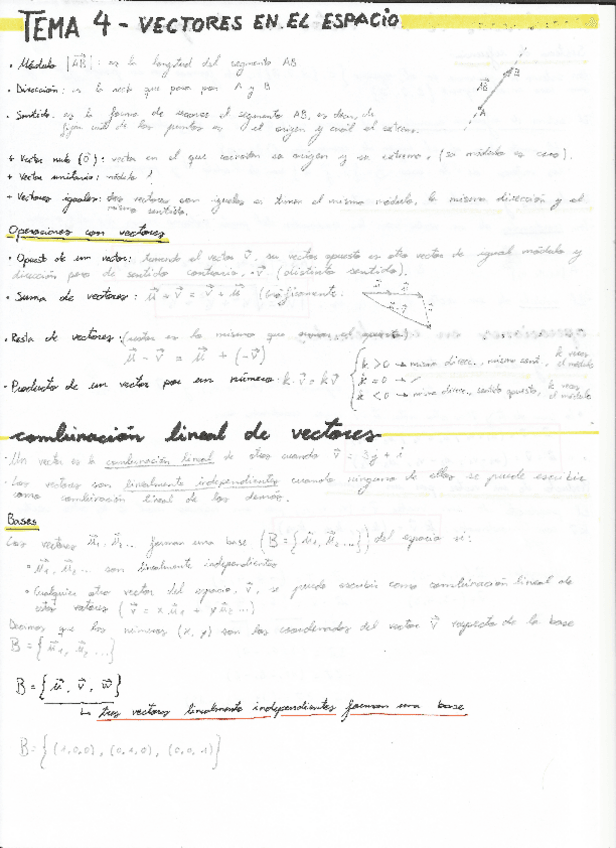 TEMA 4 - VECTORES EN EL ESPACIO
• Módulo |AB|: es la longitud del segmento AB
• Dirección: es la recta que pasa por A y B
• Sentido: es la forma de recorrer el segmento AB, es decir, de
fijar cuál de los puntos es el origen y cuál el extremo.
AB
B
A
+ Vector nulo (0): vector en el que coinciden su origen y su extremo, (su módulo es cero).
+ Vector unitario: módulo 1
+ Vectores iguales: dos vectores son iguales si tienen el mismo módulo, la misma dirección y el
mismo sentido.
Operaciones con vectores
• Opuesto de un vector: tomando el vector v, su vector opuesto es otro vector de igual módulo y
dirección pero de sentido contrario, -v (distinto sentido).
• Suma de vectores: u + v = v + u (Gráficamente:
• Resta de vectores: (restar es lo mismo que sumar el opuesto)
u - v = u + (-v)
• Producto de un vector por un número: k · v = kv
k > 0 → misma direcc., mismo sent., k veces el módulo
k = 0 →
k < 0 → misma direcc., sentido opuesto, k veces el módulo
combinación lineal de vectores
• Un vector es la combinación lineal de otros cuando v = 3j + i
• Los vectores son linealmente independientes cuando ninguno de ellos se puede escribir
como combinación lineal de los demás.
Bases
Los vectores u₁, u₂... forman una base (B = {u₁, u₂...}) del espacio si:
• u₁, u₂... son linealmente independientes
• Cualquier otro vector del espacio, v, se puede escribir como combinación lineal de
estos vectores (v = x u₁ + y u₂...)
Decimos que los números (x, y) son las coordenadas del vector v respecto de la base
B = {u₁, u₂...}
B = {u, v, w}
↳ tres vectores linealmente independientes forman una base
B = {(1,0,0), (0,1,0), (0,0,1)}